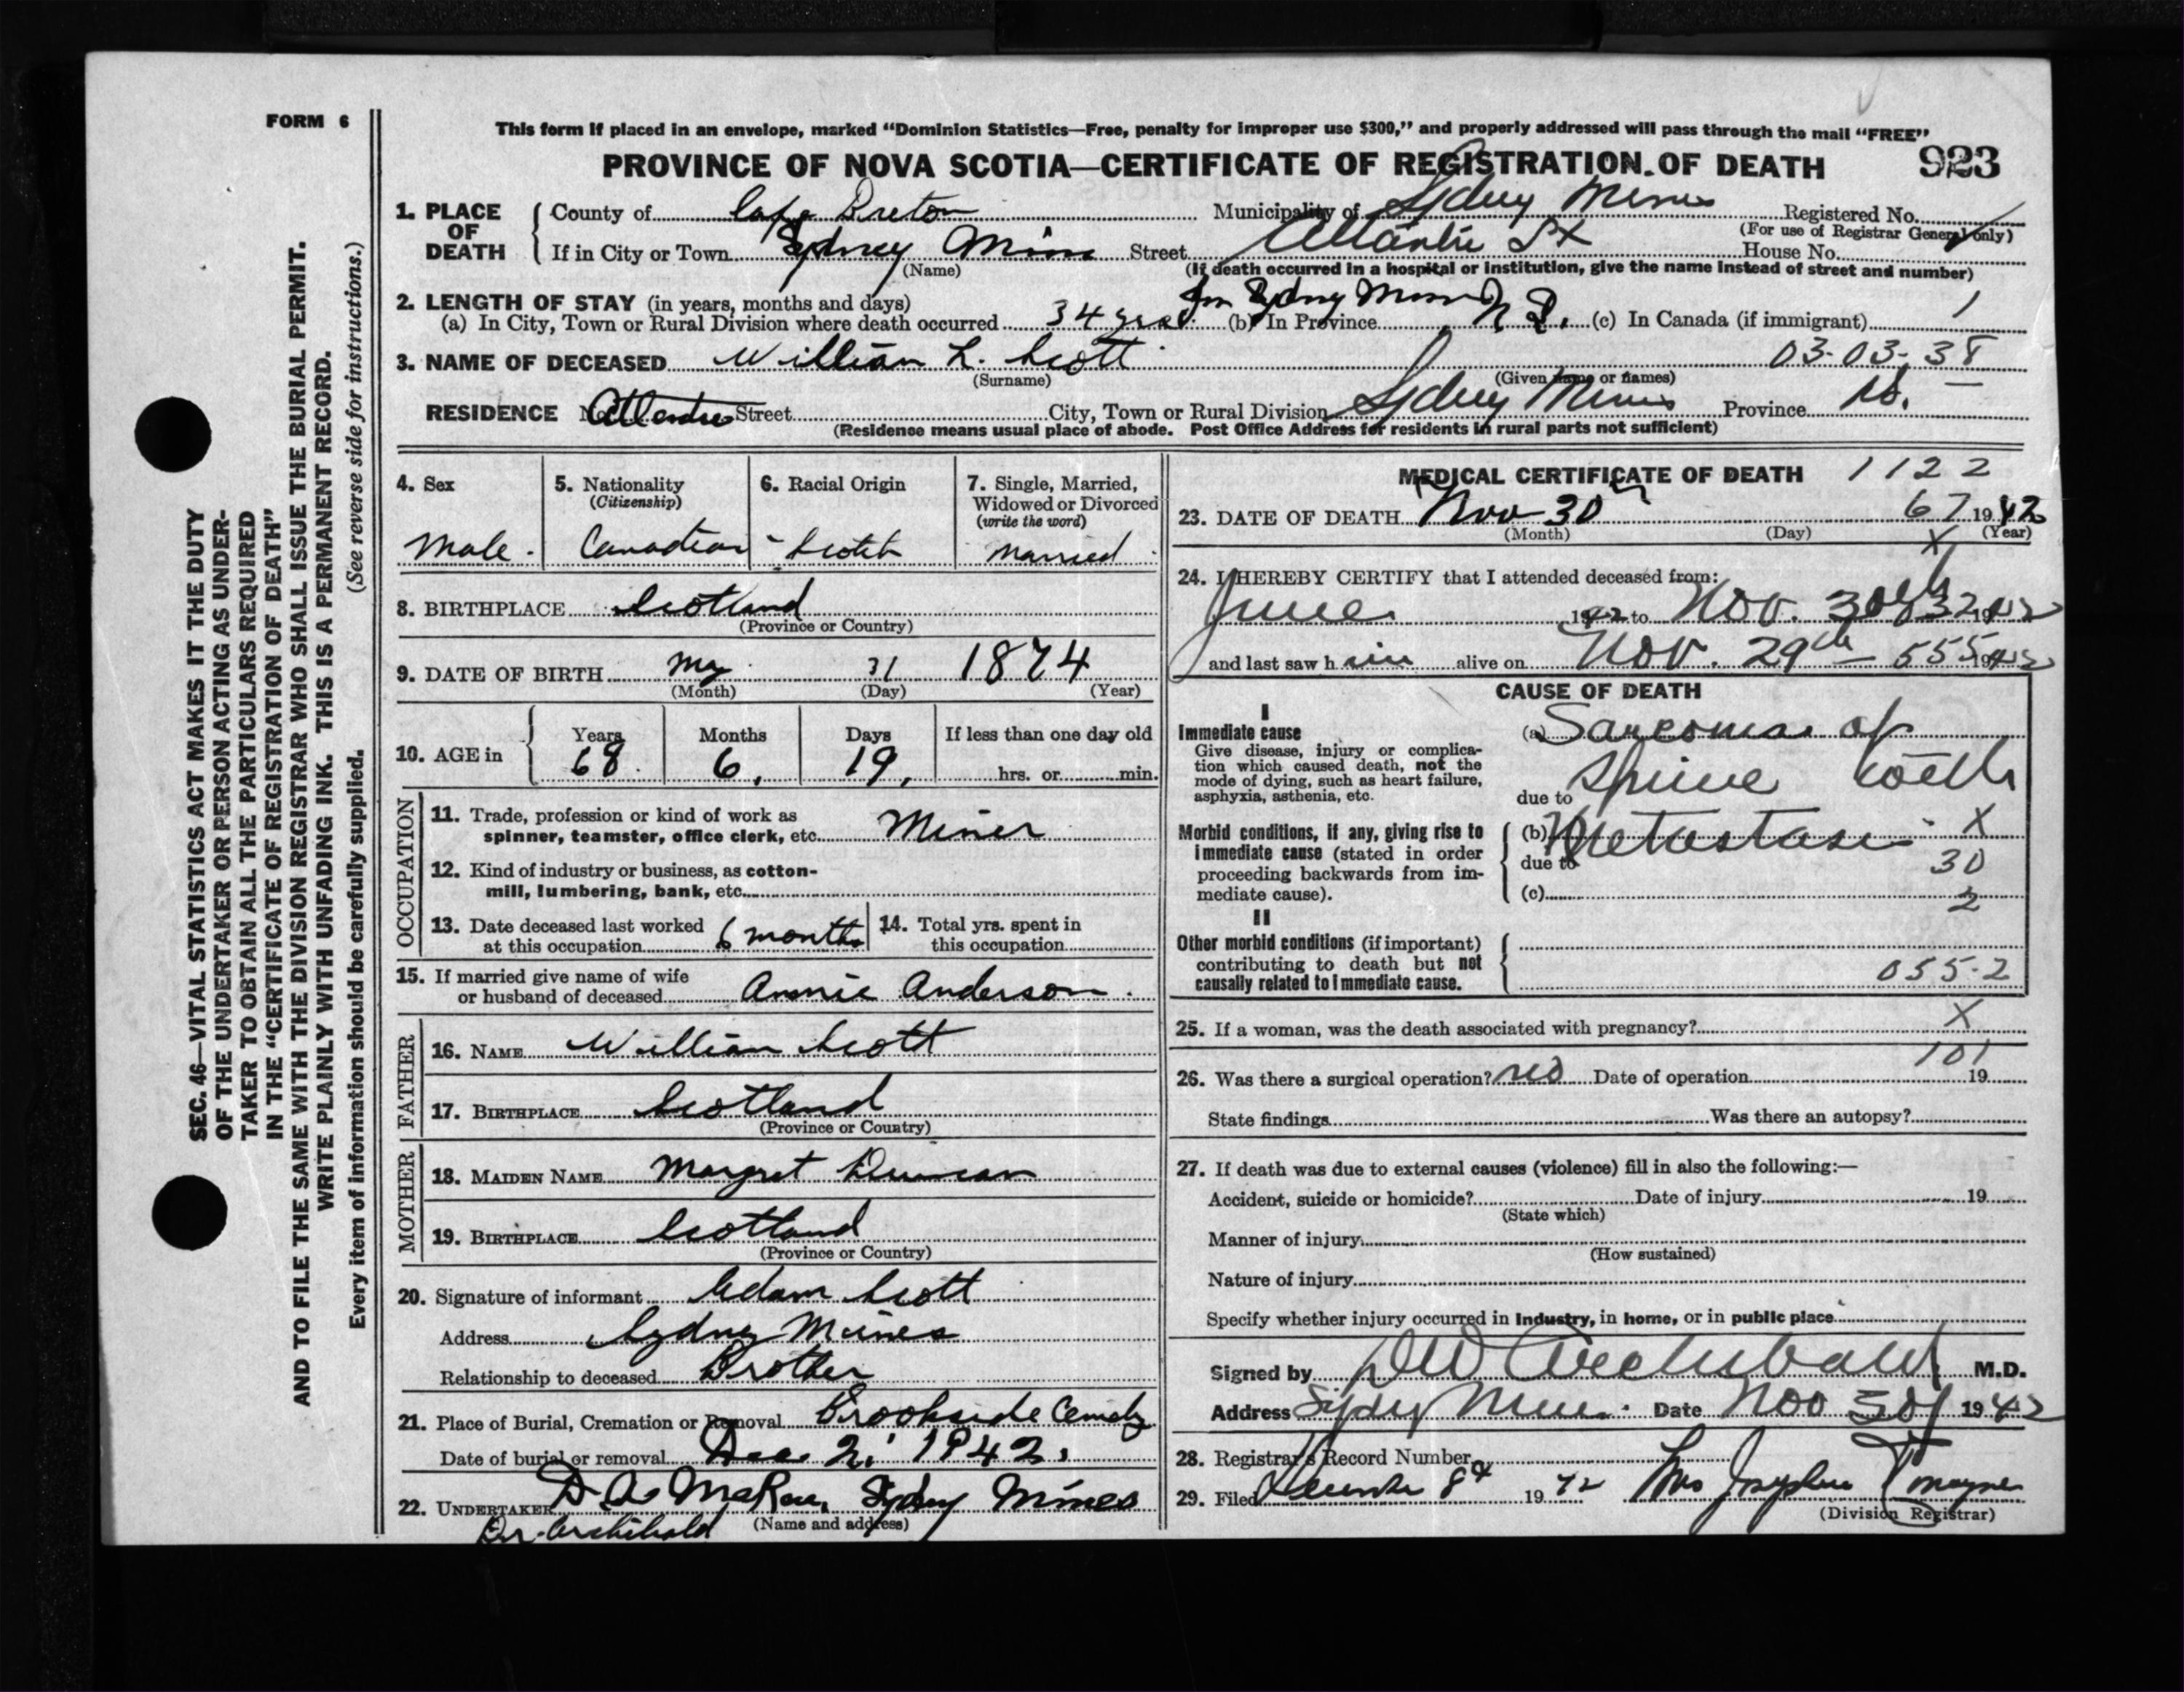 FORM 6
This form if placed in an envelope, marked "Dominion Statistics—Free, penalty for improper use $300," and properly addressed will pass through the mail "FREE"
PROVINCE OF NOVA SCOTIA—CERTIFICATE OF REGISTRATION OF DEATH 923
1. PLACE OF DEATH
County of Cape Breton Municipality of Sydney Mines Registered No.
(For use of Registrar General only)
If in City or Town Sydney Mines Street Atlantic St House No.
(Name) (If death occurred in a hospital or institution, give the name instead of street and number)
2. LENGTH OF STAY (in years, months and days)
(a) In City, Town or Rural Division where death occurred 34 yrs. in Sydney Mines (b) In Province N S. (c) In Canada (if immigrant) 1
3. NAME OF DECEASED William L. Scott 03-03-38
(Surname) (Given name or names)
RESIDENCE No. Street City, Town or Rural Division Sydney Mines Province N.S.
(Residence means usual place of abode. Post Office Address for residents in rural parts not sufficient)
4. Sex
Male.
5. Nationality
(Citizenship)
Canadian
6. Racial Origin
Scotch
7. Single, Married, Widowed or Divorced
(write the word)
Married
8. BIRTHPLACE Scotland
(Province or Country)
9. DATE OF BIRTH May 31 1874
(Month) (Day) (Year)
10. AGE in
Years Months Days If less than one day old
68. 6, 19, hrs. or min.
OCCUPATION
11. Trade, profession or kind of work as spinner, teamster, office clerk, etc. Miner
12. Kind of industry or business, as cotton-mill, lumbering, bank, etc.
13. Date deceased last worked at this occupation 6 months
14. Total yrs. spent in this occupation
15. If married give name of wife or husband of deceased Annie Anderson.
FATHER
16. NAME William Scott
17. BIRTHPLACE Scotland
(Province or Country)
MOTHER
18. MAIDEN NAME Margret Duncan
19. BIRTHPLACE Scotland
(Province or Country)
20. Signature of informant Adam Scott
Address Sydney Mines
Relationship to deceased Brother
21. Place of Burial, Cremation or Removal Brookside
Date of burial or removal Dec 2, 1942,
22. UNDERTAKER D A McRae, Sydney Mines
Dr. Archibald (Name and address)
MEDICAL CERTIFICATE OF DEATH 1122
23. DATE OF DEATH Nov 30 67 1942
(Month) (Day) (Year)
X
24. I HEREBY CERTIFY that I attended deceased from:
June 1942 to Nov. 30th 32 1942
and last saw him alive on Nov. 29th — 555 1942
CAUSE OF DEATH
I
Immediate cause
Give disease, injury or complication which caused death, not the mode of dying, such as heart failure, asphyxia, asthenia, etc.
(a) Sarcoma of
due to Spine with
Morbid conditions, if any, giving rise to immediate cause (stated in order proceeding backwards from immediate cause).
(b) Metastasis X
due to 30
(c) 2
II
Other morbid conditions (if important) contributing to death but not causally related to immediate cause.
055-2
25. If a woman, was the death associated with pregnancy? X
101
26. Was there a surgical operation? no Date of operation 19
State findings Was there an autopsy?
27. If death was due to external causes (violence) fill in also the following:—
Accident, suicide or homicide? Date of injury 19
(State which)
Manner of injury
(How sustained)
Nature of injury
Specify whether injury occurred in industry, in home, or in public place
Signed by DW Archibald M.D.
Address Sydney Mines. Date Nov 30 1942
28. Registrar's Record Number
29. Filed December 8th 1942 Mrs Josephine
(Division Registrar)
SEC. 46—VITAL STATISTICS ACT MAKES IT THE DUTY
OF THE UNDERTAKER OR PERSON ACTING AS UNDER-
TAKER TO OBTAIN ALL THE PARTICULARS REQUIRED
IN THE "CERTIFICATE OF REGISTRATION OF DEATH"
AND TO FILE THE SAME WITH THE DIVISION REGISTRAR WHO SHALL ISSUE THE BURIAL PERMIT.
WRITE PLAINLY WITH UNFADING INK. THIS IS A PERMANENT RECORD.
Every item of information should be carefully supplied. (See reverse side for instructions.)